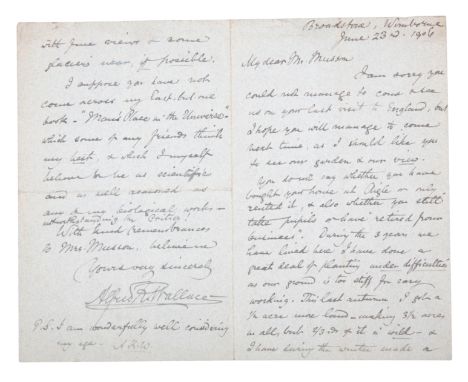 Broadstone, Wimborne
June 23rd. 1906
My dear Mr. Musson
I am sorry you
could not manage to come & see
us on your last visit to England, but
I hope you will manage to come
next time, as I should like you
to see our garden & our view.
You do not say whether you have
bought your house at Aigle or only
rented it, & also whether you still
take pupils or have retired from
business. During the 3 years we
have lived here I have done a
great deal of planting under difficulties
as our ground is too stiff for easy
working. This last autumn, I got a
acre more land - making 3½ acres
in all, but 2/3ds of it is wild - &
I have during the winter made a
with fine views & some
glaciers near, if possible.
I suppose you have not
come across my last but one
book - "Man's Place in the Universe" -
which some of my friends think
my best, & which I myself
believe to be as scientific
and as well reasoned as
any of my biological works -
notwithstanding the Critics!
With kind remembrances
to Mrs. Musson, believe me
Yours very sincerely
Alfred R. Wallace
P.S. I am wonderfully well considering
my age - A.R.W.